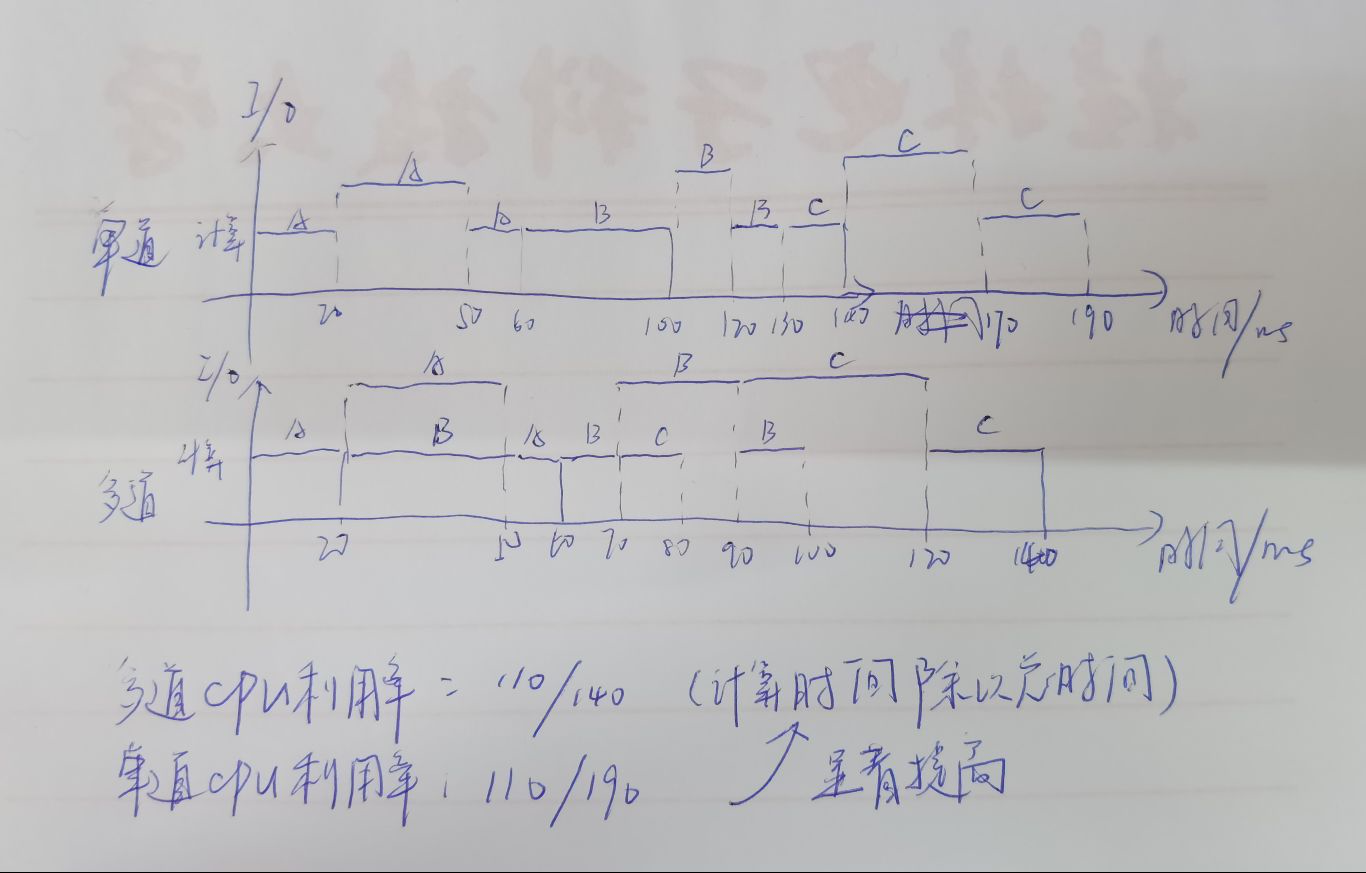 I/O
A B C
单道 计算 A A B B C C
20 50 60 100 120 130 140 170 190 时间/ms
I/O A B C
计算 A B A B C B C
多道
20 50 60 70 80 90 100 120 140 时间/ms
多道CPU利用率 = 110/140 (计算时间除以总时间)
单道CPU利用率: 110/190 显著提高